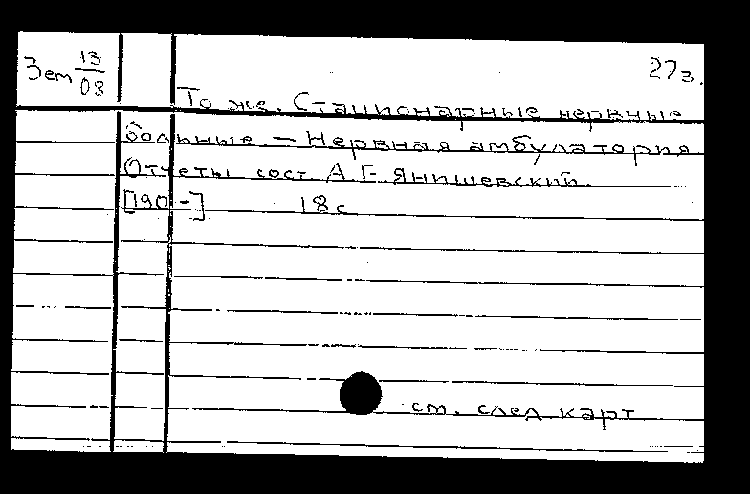 Зем 13/08
27з.
То же. Стационарные нервные
больные. — Нервная амбулатория
Отчеты сост. А. Г. Янишевский.
[190-] 18 с
см. след карт